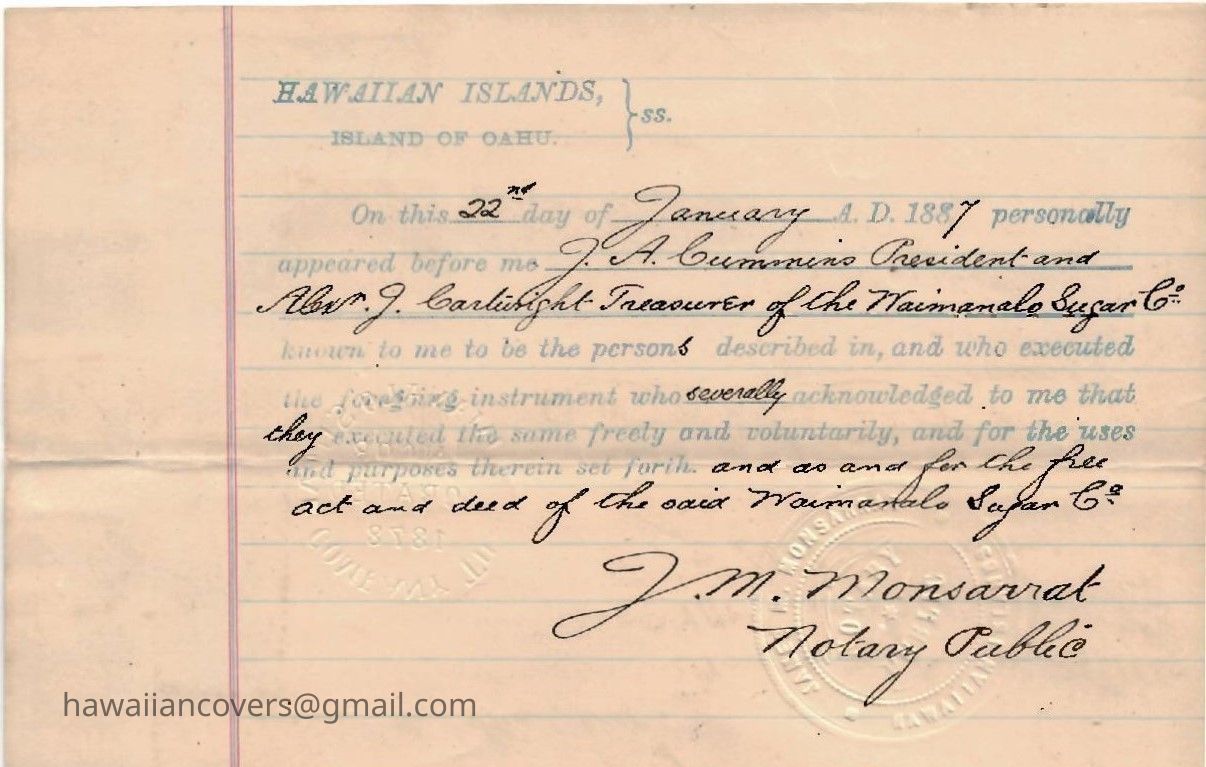 HAWAIIAN ISLANDS, } ss.
ISLAND OF OAHU.
On this 22nd day of January A. D. 1887 personally
appeared before me J. A. Cummins President and
Alexr. J. Cartwright Treasurer of the Waimanalo Sugar Co.
known to me to be the persons described in, and who executed
the foregoing instrument who severally acknowledged to me that
they executed the same freely and voluntarily, and for the uses
and purposes therein set forth. and as and for the free
act and deed of the said Waimanalo Sugar Co.
J. M. Monsarrat
Notary Public
1878
hawaiiancovers@gmail.com